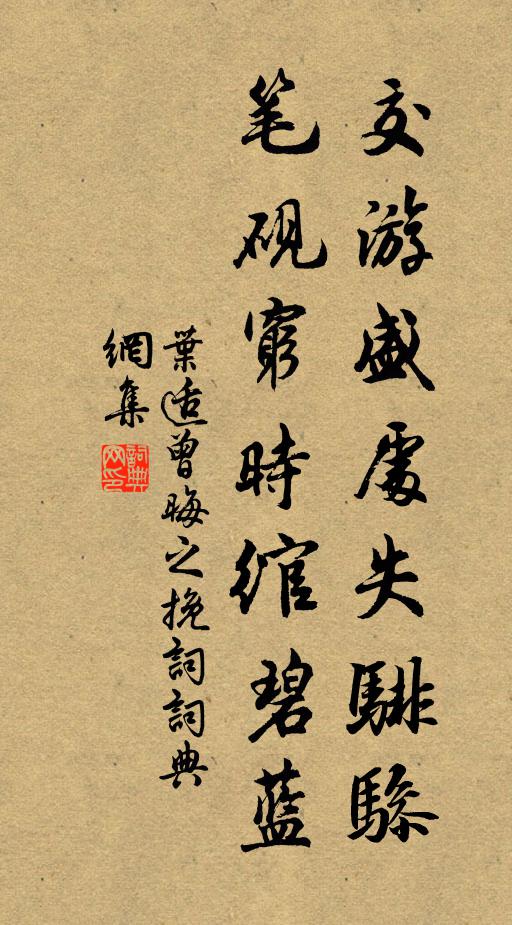 交游盛處失騑驂
笔硯窮時綰碧藍
葉适曾晦之挽詞詞典
網集
詞典網印